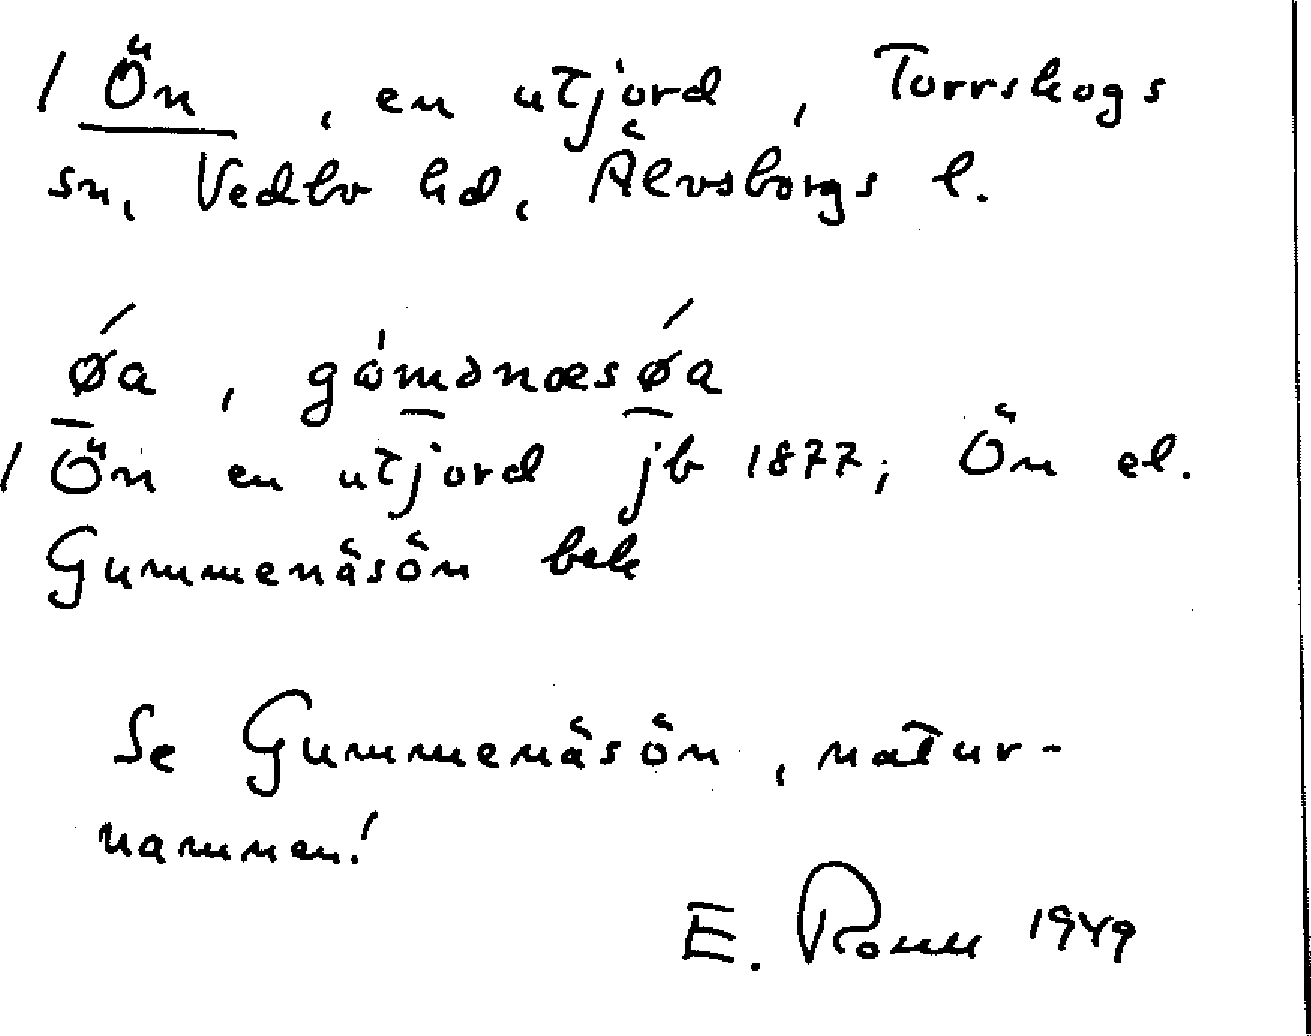 / Ön, en utjord, Torrskogs
sn, Vedbo hd, Älvsborgs l.
ǿa, gómənæsǿa
/ Ön en utjord jb 1877; Ön el.
Gummenäsön bek
Se Gummenäsön, natur-
namnen!
E. 1949